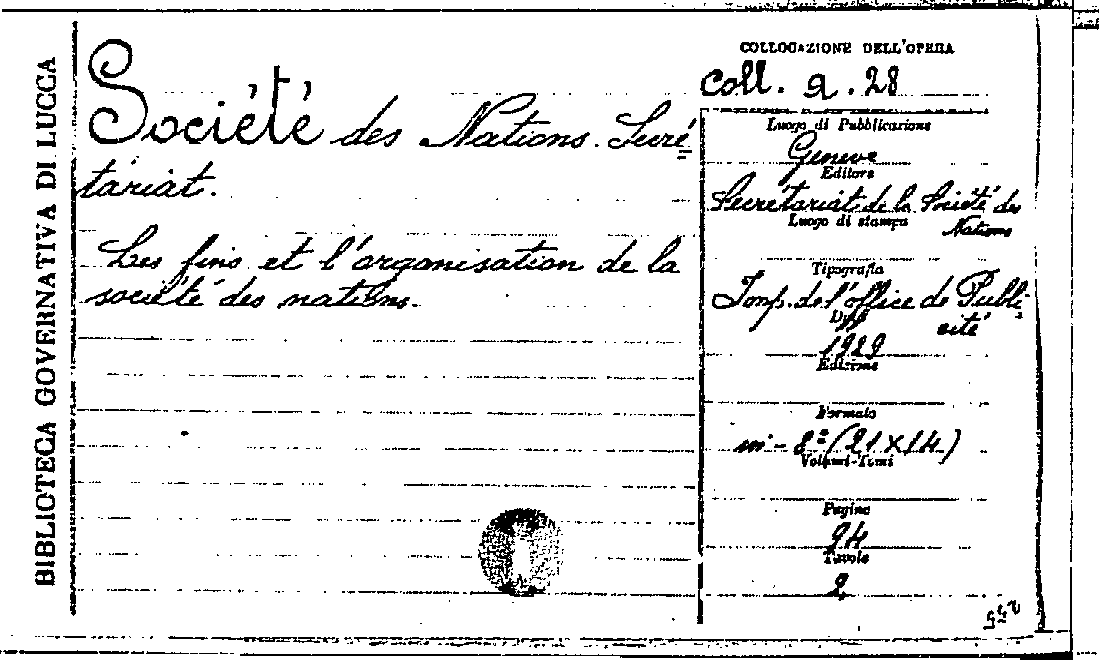 BIBLIOTECA GOVERNATIVA DI LUCCA
Société des Nations. Secré
tariat.
Les fins et l'organisation de la
société des nations.
COLLOCAZIONE DELL'OPERA
Coll. a. 28
Luogo di Pubblicazione
Geneve
Editore
Secrétariat de la Société des
Nations
Luogo di stampa
Tipografia
Imp. de l'office de Publi
cité
1929
Edizione
Formato
in-8º (21 x 14)
Volumi-Tomi
Pagine
94
Tavole
2